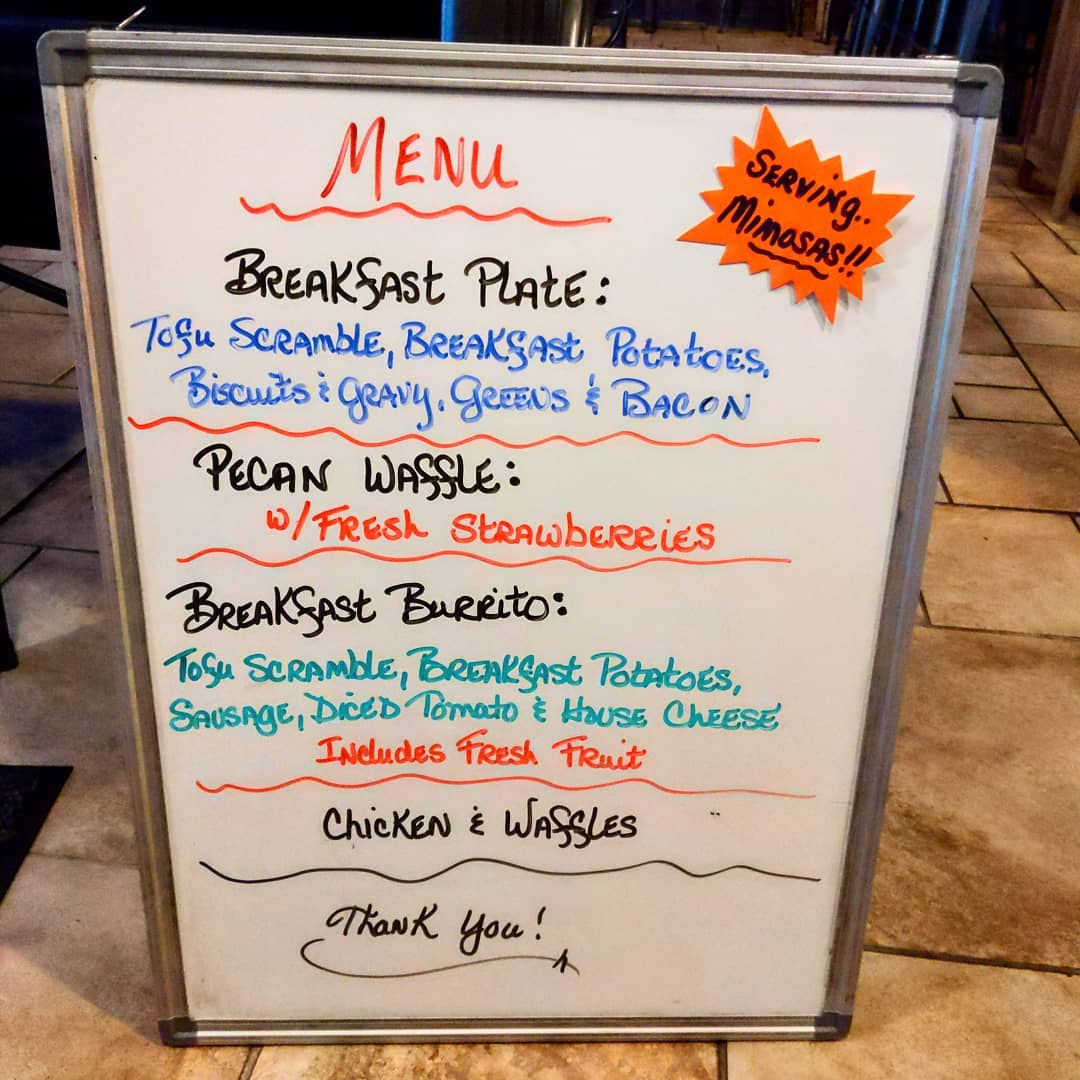 MENU
SERVING..
MIMOSAS!!
BREAKFAST PLATE:
TOFU SCRAMBLE, BREAKFAST POTATOES,
BISCUITS & GRAVY, GREENS & BACON
PECAN WAFFLE:
W/FRESH STRAWBERRIES
BREAKFAST BURRITO:
TOFU SCRAMBLE, BREAKFAST POTATOES,
SAUSAGE, DICED TOMATO & HOUSE CHEESE
INCLUDES FRESH FRUIT
CHICKEN & WAFFLES
THANK YOU!